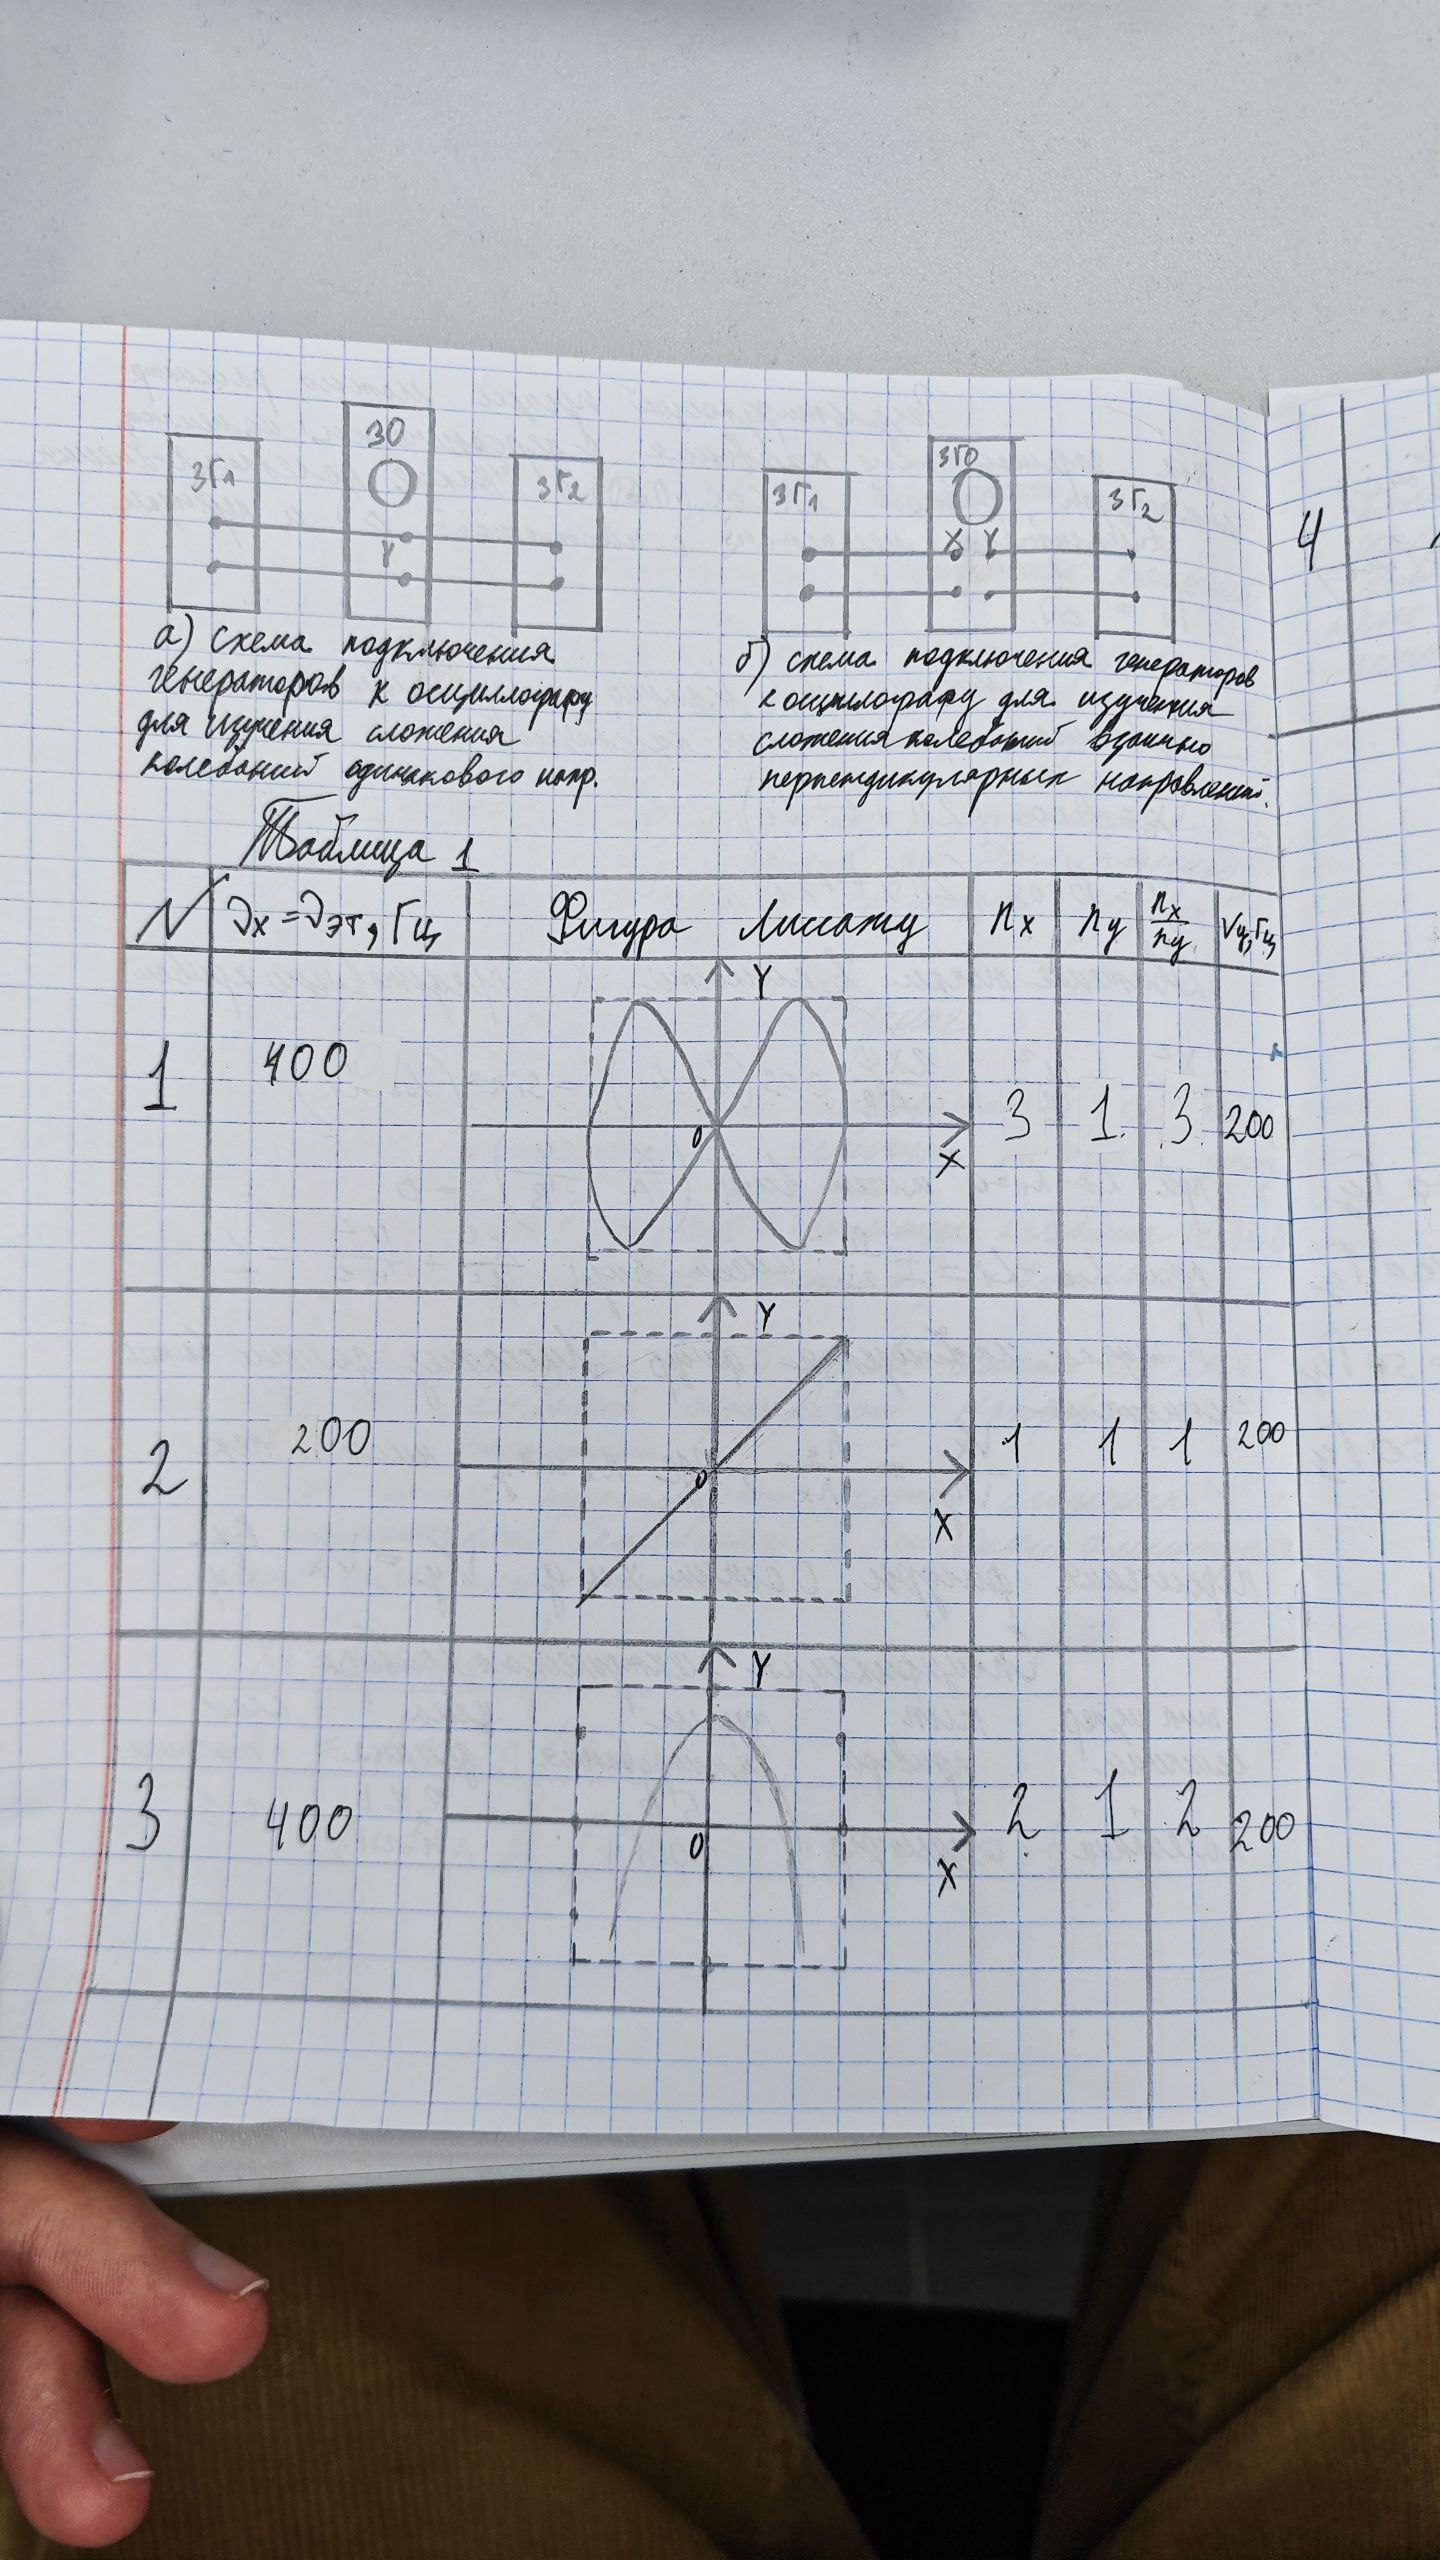 ЗГ1
ЗО
ЗГ2
Y
а) схема подключения
генераторов к осциллографу
для изучения сложения
колебаний одинакового напр.
ЗГ1
ЗГО
ЗГ2
X Y
б) схема подключения генераторов
к осциллографу для изучения
сложения колебаний взаимно
перпендикулярных направлений.
4
Таблица 1
N νx=νэт, Гц Фигура Лиссажу nx ny nx/ny νy, Гц
1 400 Y 0 X 3 1 3 200
2 200 Y 0 X 1 1 1 200
3 400 Y 0 X 2 1 2 200